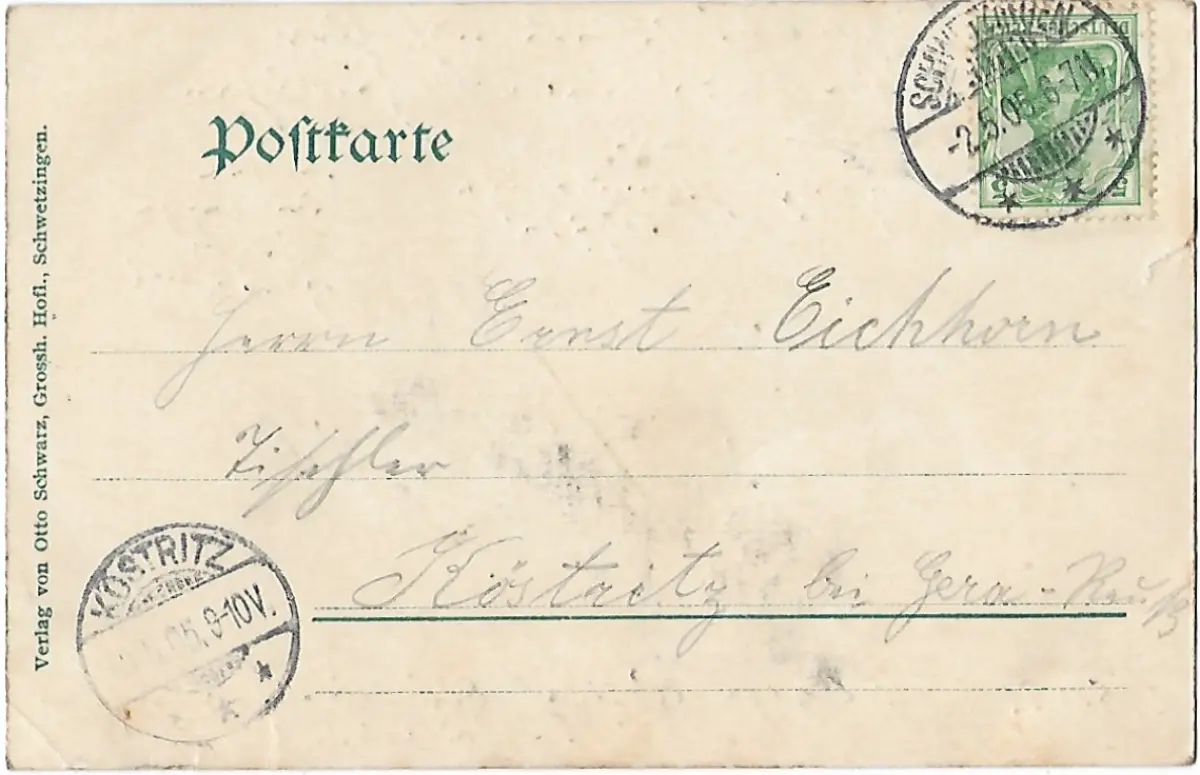 Postkarte
SCHWETZINGEN
-2.5.05. 6-7N.
Herrn Ernst Eichhorn
Tischler
Köstritz bei Gera-Reuß
KÖSTRITZ
05. 9-10V.
Verlag von Otto Schwarz, Grossh. Hofl., Schwetzingen.